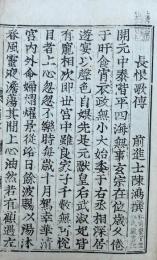 長恨歌傳　前進士陳鴻撰
開元中泰階平四海無事玄宗在位歲久倦
于旰食宵衣政無小大始委于右丞相深居
遊宴以聲色自娛先是元獻皇后武淑妃皆
有寵相次即世宮中雖良家子千數無可悅
目者上心忽忽不樂時每歲十月駕幸華清
宮內外命婦熠燿景從浴日餘波賜以湯沐
春風靈液澹蕩其間上心油然若有顧遇左